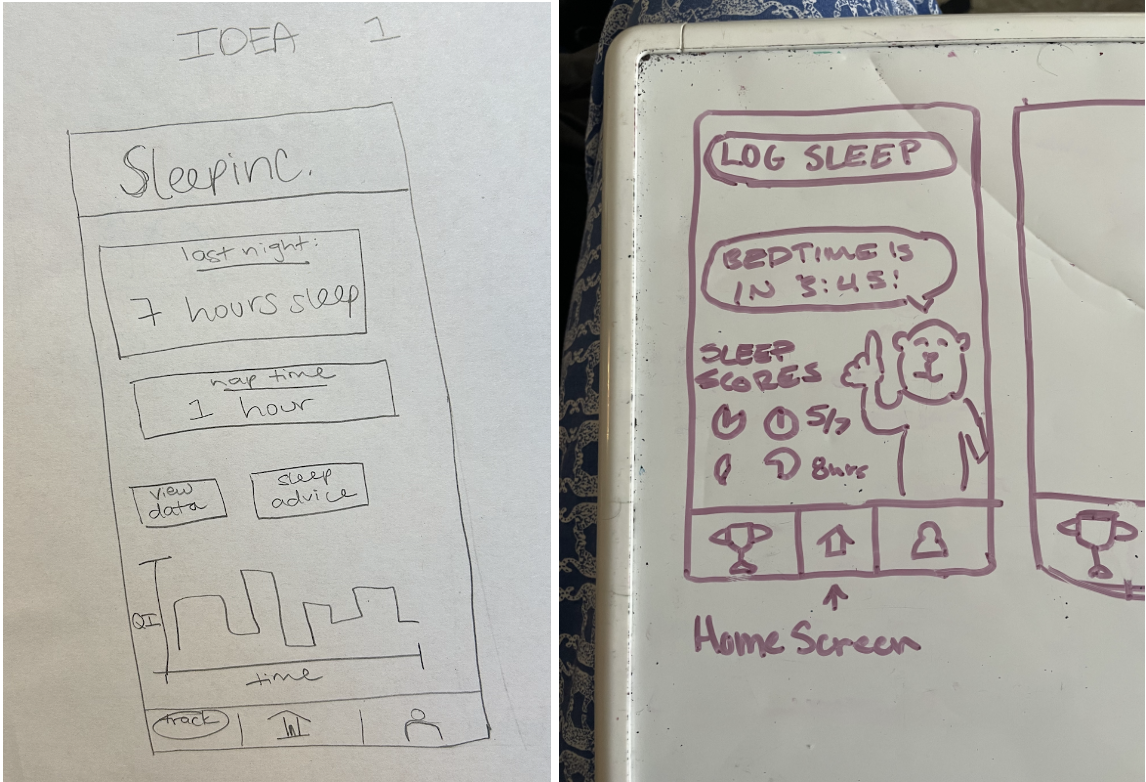 IDEA 1
Sleepinc.
last night:
7 hours sleep
nap time
1 hour
view
data
sleep
advice
QI
time
track
LOG SLEEP
BEDTIME IS
IN 3:45!
SLEEP
SCORES
5/7
8hrs
Home Screen